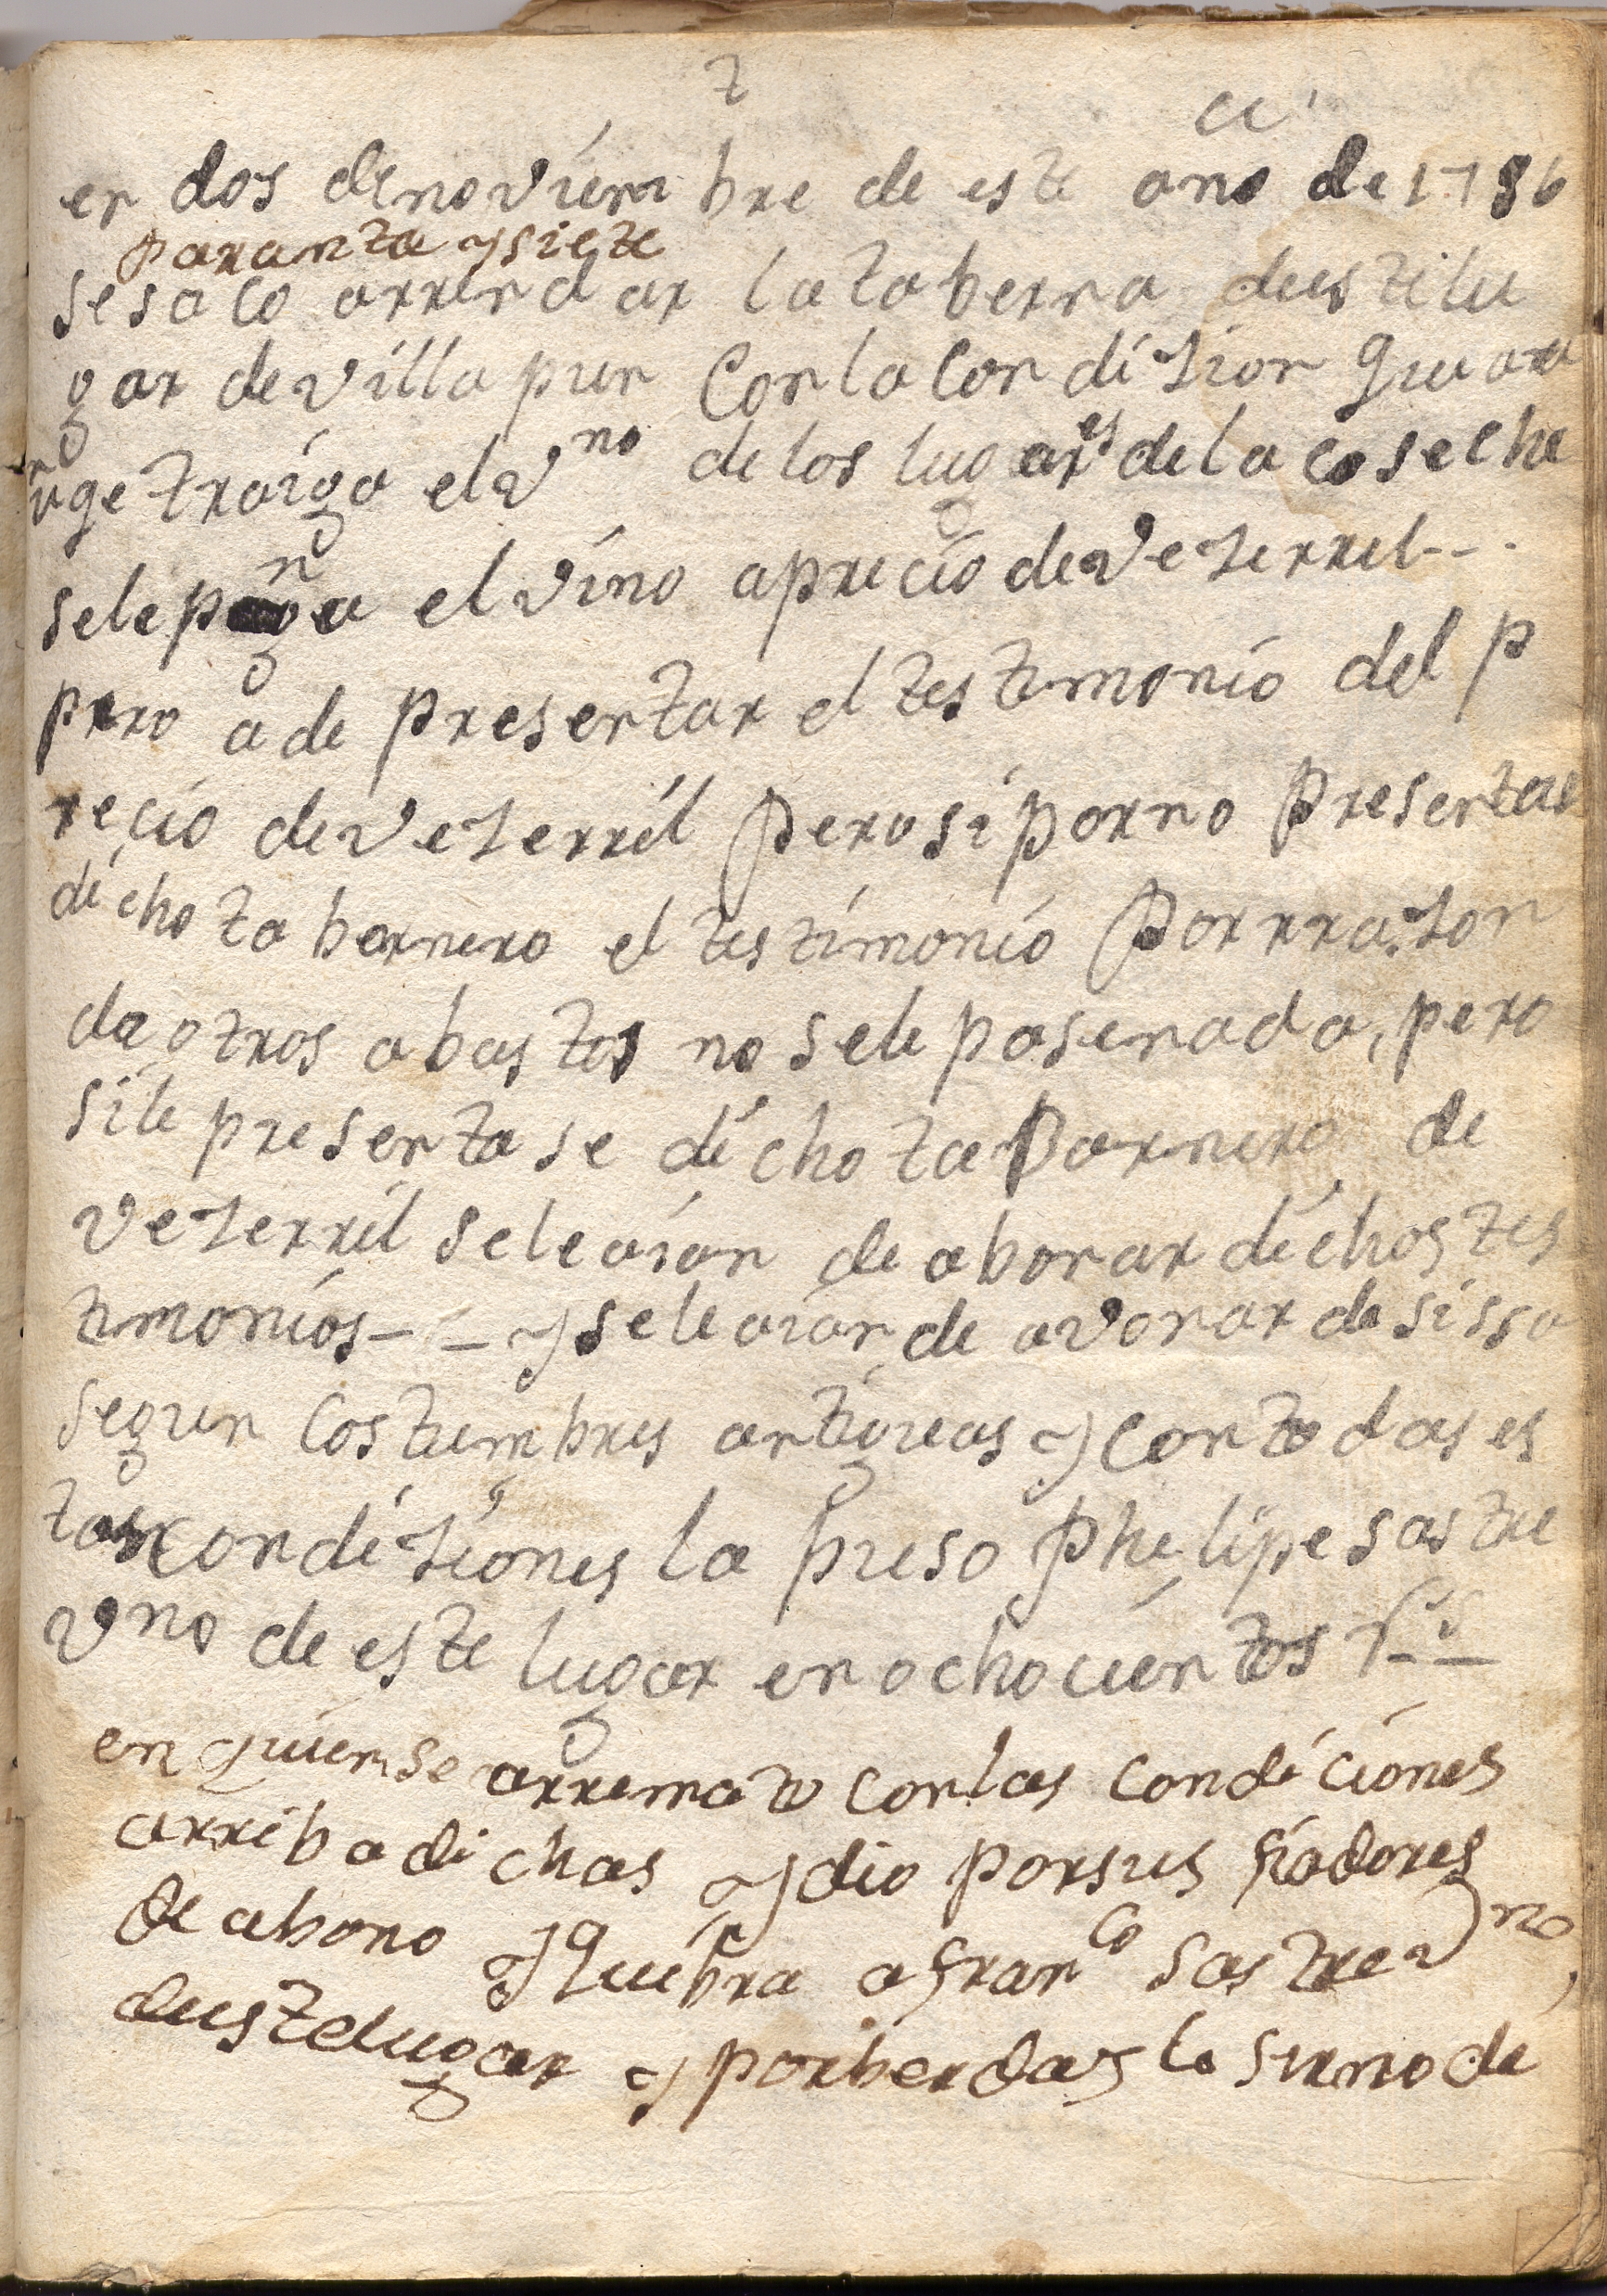 en dos de noviembre de este año de 1786
para nta y siete
se saco arrendar la taberna de este lu
gar de villa pun con la condizion que
traiga el vno de los lugares de la cosecha
se le pga el vino a precio de vezerril - -
pero a de presentar el testimonio del p
recio de vezerril pero si por no presentar
dicho tabarnero el testimonio por rrazon
de otros abastos no se le pase nada, pero
si le presentase dicho tabarnero de
vezerril se le aian de abonar dichos tes
timonios - - y se le aian de avonar de sissa
segun costumbres antiguas y con todas es
tas condiziones la puso phelipe sastre
vno de este lugar en ochocientos rs
en quien se arremato con las condiciones
arriba dichas y dio por sus fiadores
de abono y quiebra a franco sastre vno
de este lugar y por berdad lo firmo de